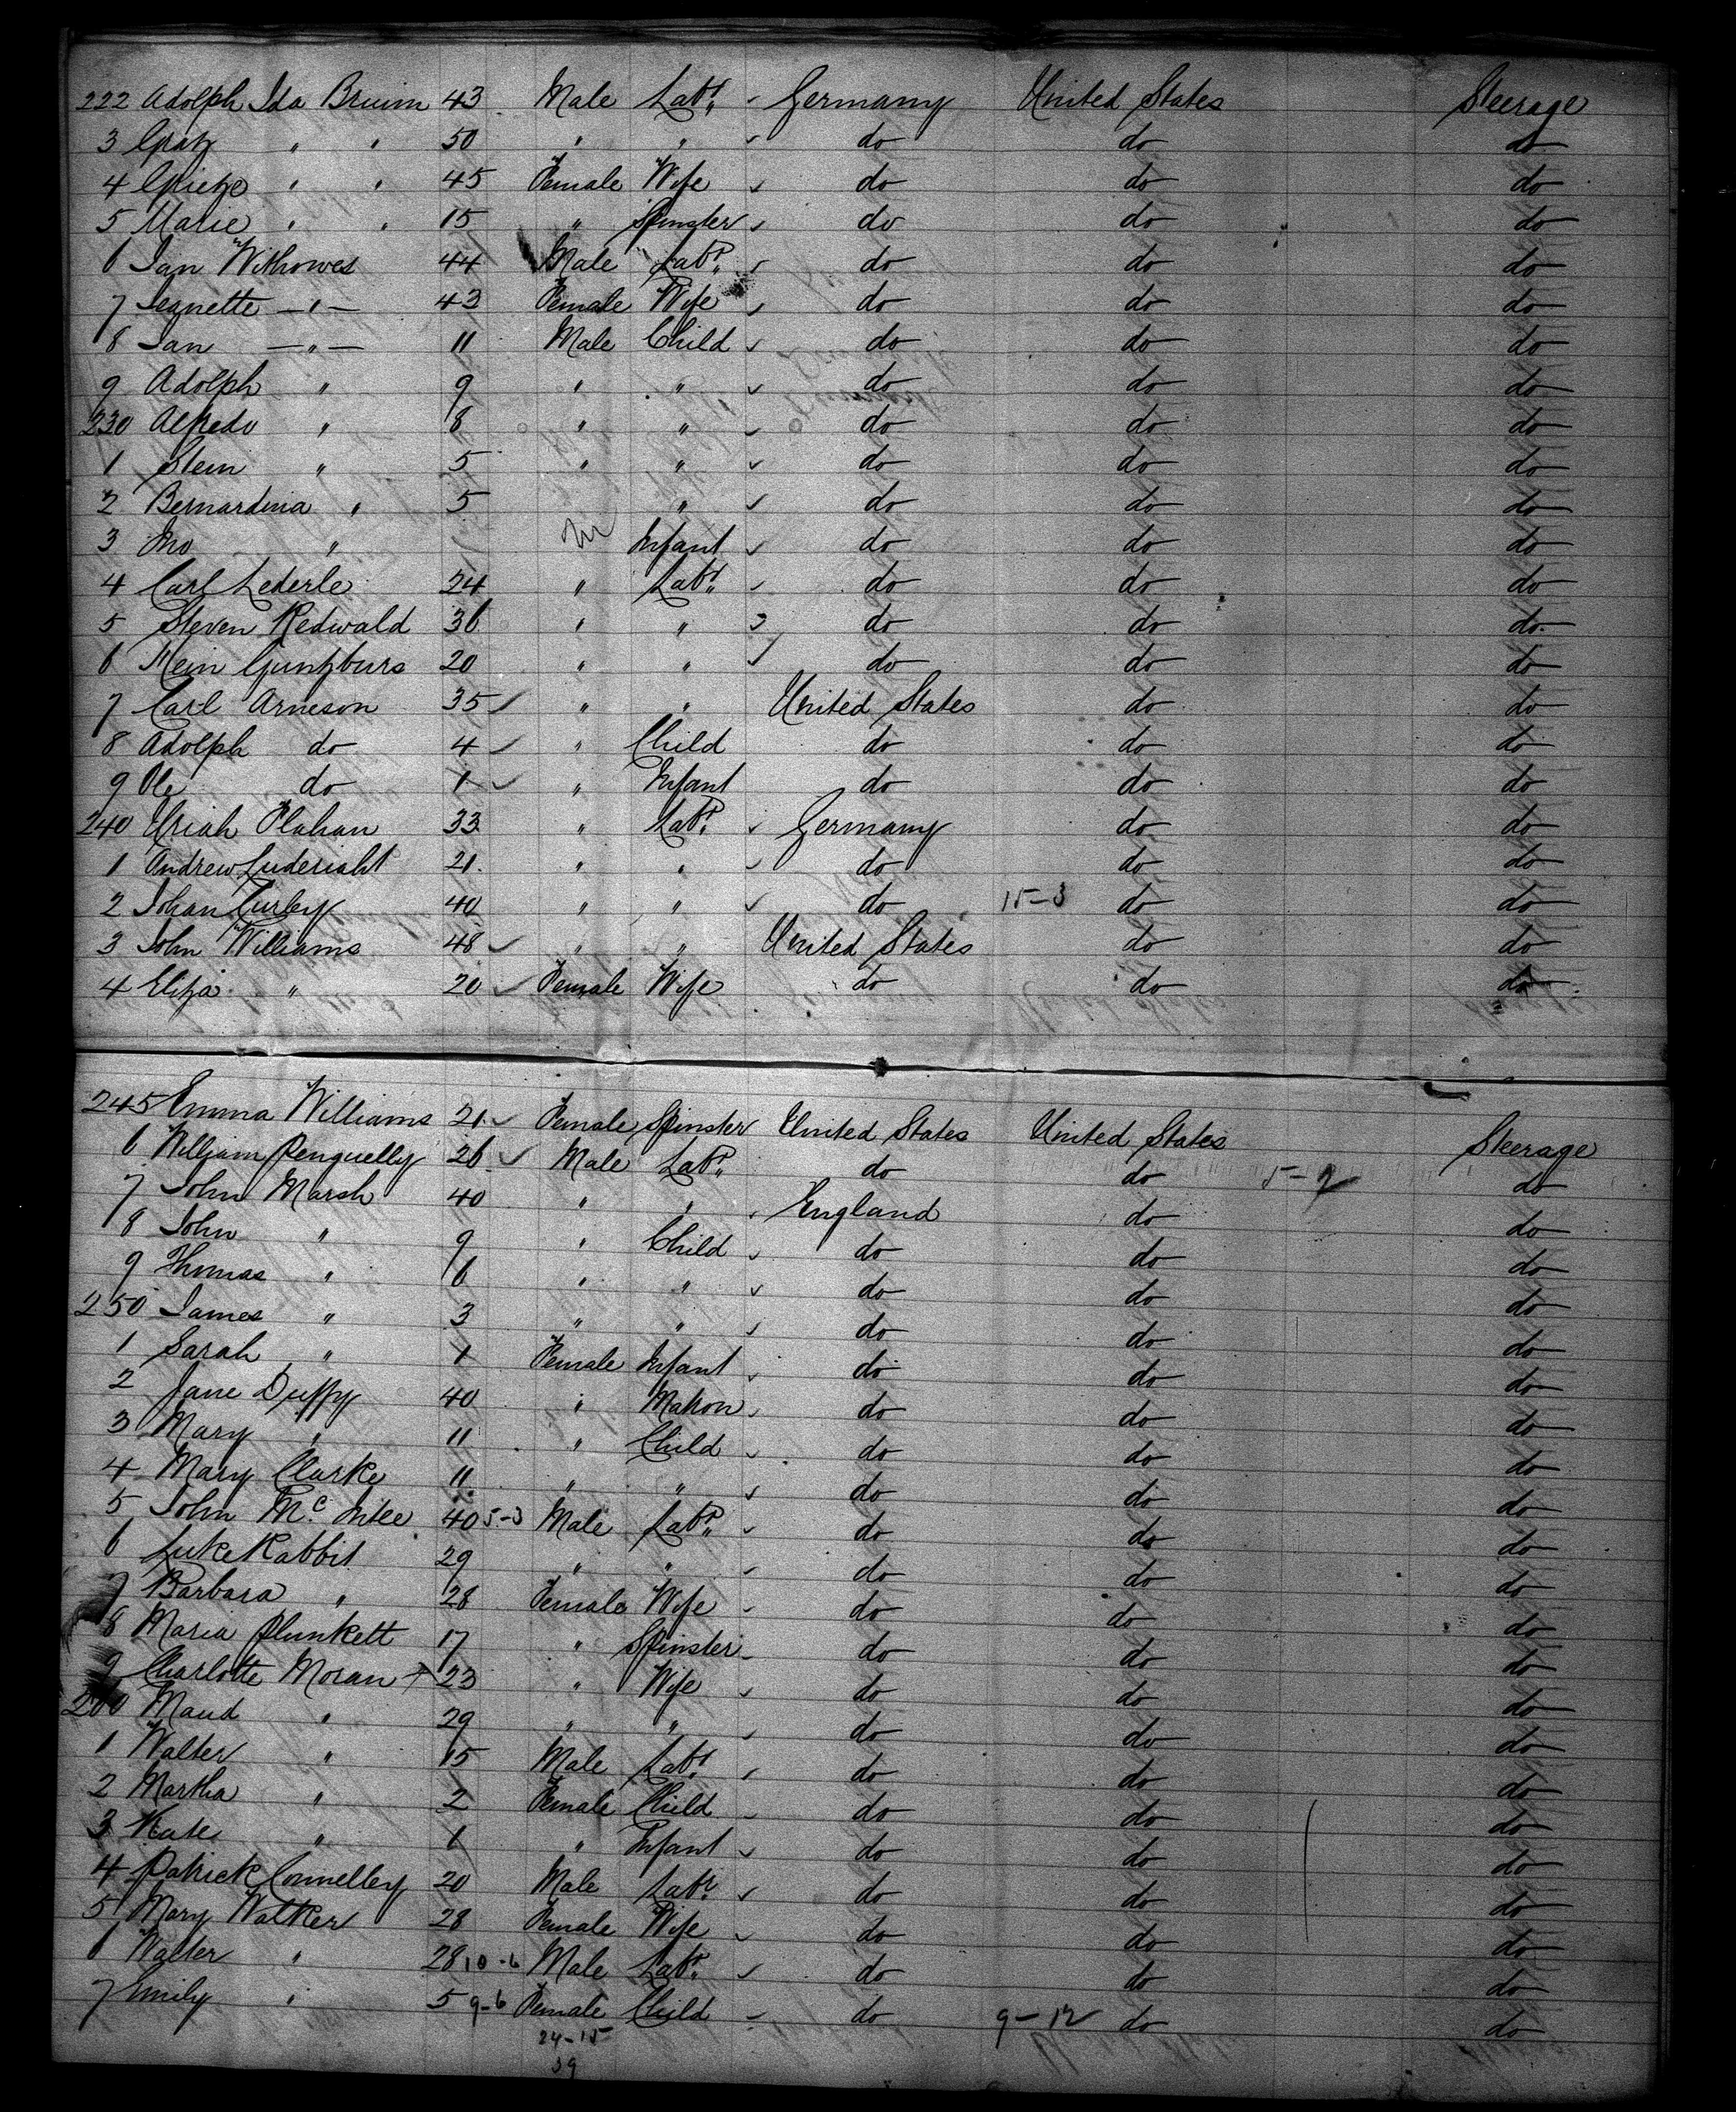 222 Adolph Ida Bruim 43 Male Labr. Germany United States Steerage
3 Gratz " " 50 " " do do do
4 Grietze " " 45 Female Wife do do do
5 Marie " " 15 " Spinster do do do
6 Jan Withowes 44 Male Labr. do do do
7 Jeanette " 43 Female Wife do do do
8 Jan " 11 Male Child do do do
9 Adolph " 9 " " do do do
230 Alfredo " 8 " " do do do
1 Stein " 5 " " do do do
2 Bernardina " 5 " do do do
3 Ino " M Infant do do do
4 Carl Lederle 24 " Labr. do do do
5 Steven Redwald 36 " " do do do
6 Mein Guntzburs 20 " " do do do
7 Carl Arneson 35 " " United States do do
8 Adolph do 4 " Child do do do
9 Ole do 1 " Infant do do do
240 Uriah Flahan 33 " Labr. Germany do do
1 Andrew Luderisht 21 " " do do do
2 Johan Curley 40 " " do 15-3 do do
3 John Williams 48 " " United States do do
4 Eliza " 20 Female Wife do do do
245 Emma Williams 21 Female Spinster United States United States Steerage
6 William Penguelly 26 Male Labr. do do 5-2 do
7 John Marsh 40 " " England do do
8 John " 9 " Child do do do
9 Thomas " 6 " " do do do
250 James " 3 " " do do do
1 Sarah " 1 Female Infant do do do
2 Jane Duffy 40 " Matron do do do
3 Mary " 11 " Child do do do
4 Mary Clarke 11 " " do do do
5 John Mc. Entee 40 5-3 Male Labr. do do do
6 Luke Rabbit 29 " " do do do
7 Barbara " 28 Female Wife do do do
8 Maria Plunkett 17 " Spinster do do do
9 Charlotte Moran + 23 " Wife do do do
260 Maud " 29 " " do do do
1 Walter " 15 Male Labr. do do do
2 Martha " 2 Female Child do do do
3 Kate " 1 " Infant do do do
4 Patrick Connelley 20 Male Labr. do do do
5 Mary Walker 28 Female Wife do do do
6 Walter " 28 10-6 Male Labr. do do do
7 Emily " 5 9-6 Female Child do 9-12 do do
24-15
39